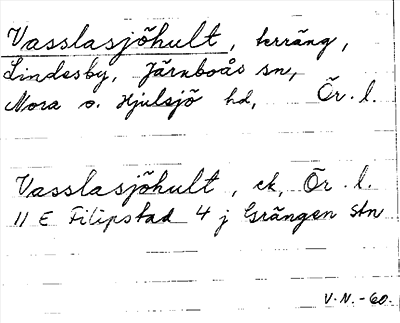 Vasslasjöhult, terräng,
Lindesby, Järnboås sn,
Nora o. Hjulsjö hd, Ör. l.
Vasslasjöhult, ek, Ör. l.
11 E Filipstad 4 j Grängen stn
V.N. -60.